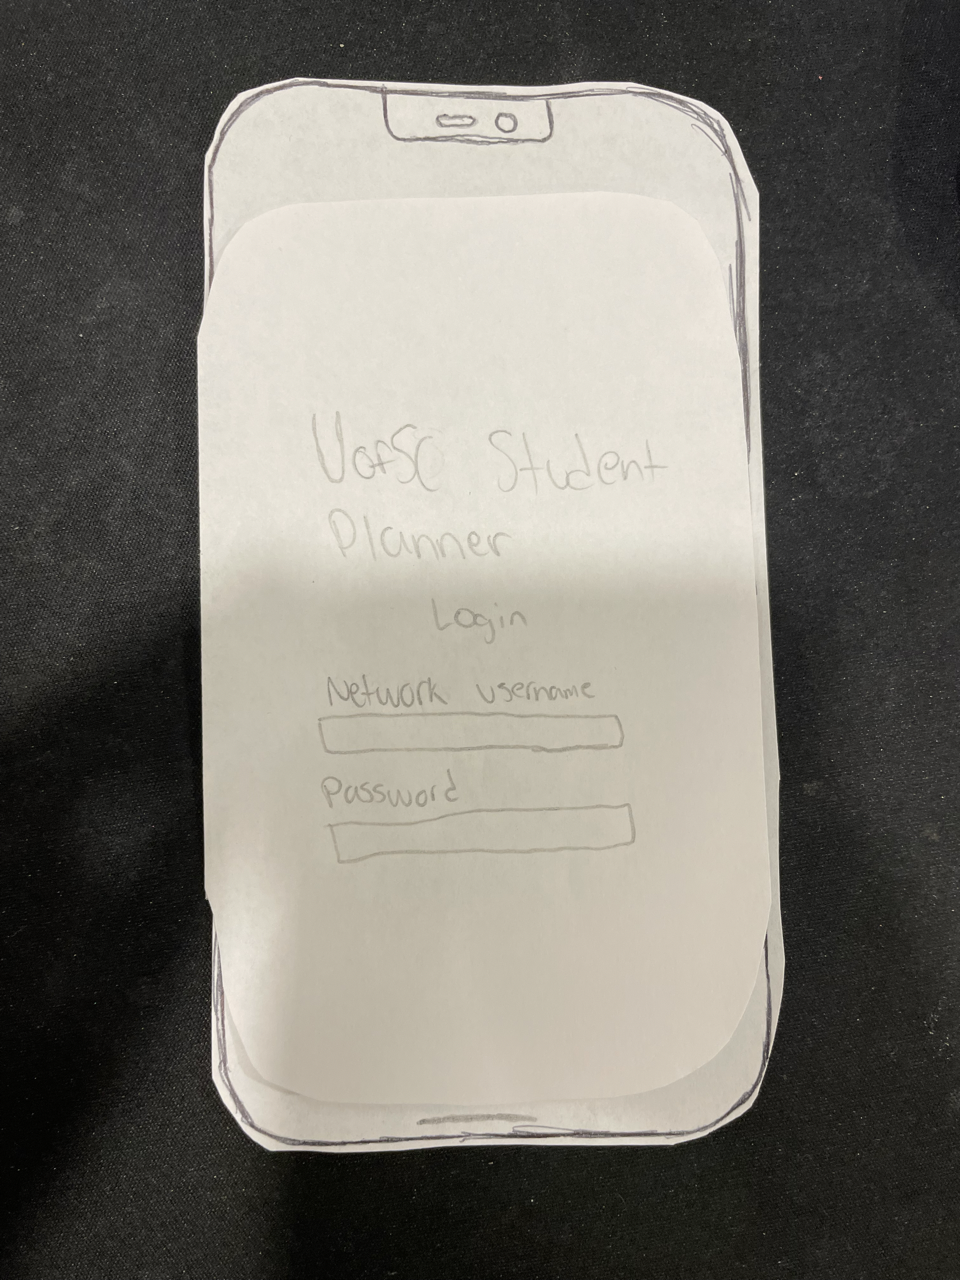 UofSC Student
Planner
Login
Network username
Password